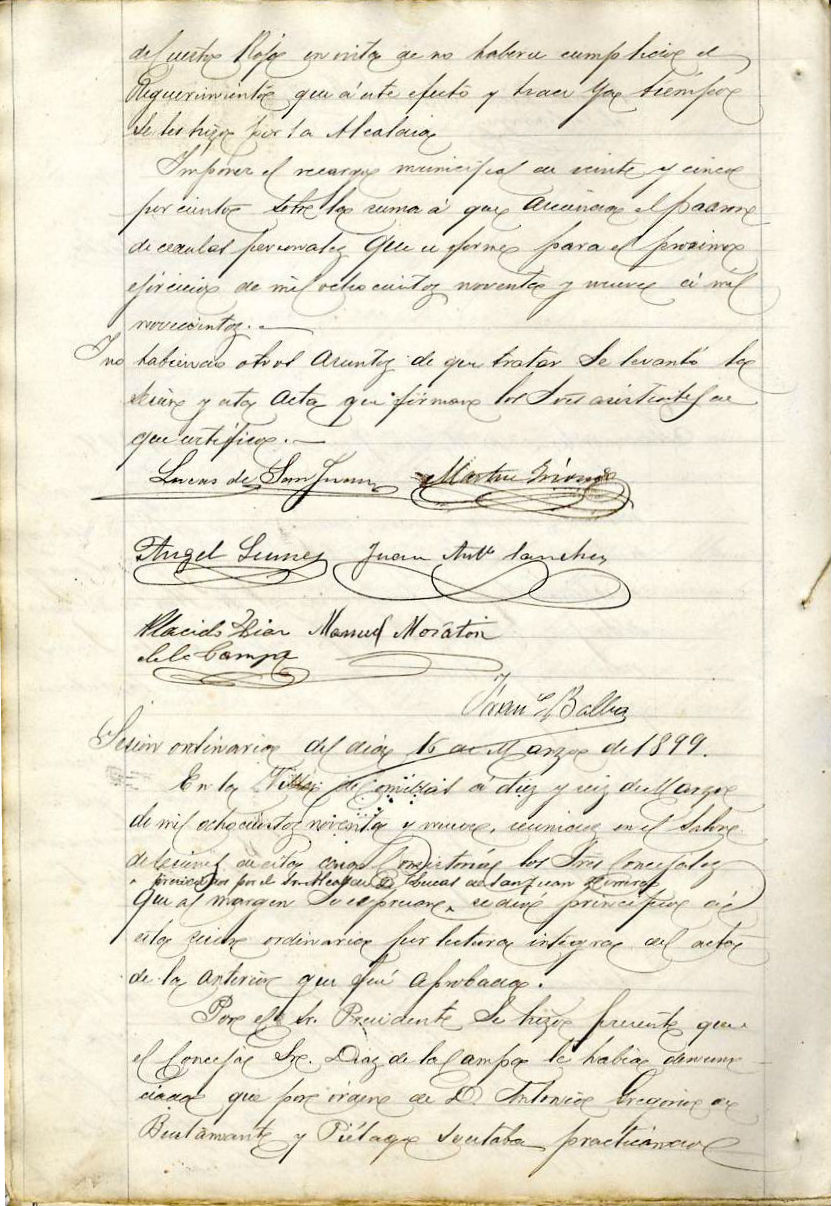 de Cuesta Roja en vista de no haberse cumplido el
Requerimiento que á este efecto y hace ya tiempo
se les hizo por la Alcaldia
Imponer el recargo municipal de veinte y cinco
por ciento sobre la suma á que ascienda el padron
de cedulas personales que se forme para el proximo
ejercicio de mil ochocientos noventa y nueve á mil
novecientos.
Y no habiendo otros asuntos de que tratar se levantó la
sesion y esta acta que firman los Sres asistentes de
que certifico.
Lucas de San Juan Martin
Angel Juan Antº Sanchez
Placido Diaz Manuel Moratón
de la Campa
Juan Balbas
Sesion ordinaria del dia 16 de Marzo de 1899.
En la Villa de Comillas á diez y seis de Marzo
de mil ochocientos noventa y nueve, reunidos en el Salon
de sesiones de estas casas Consistoriales los Sres Concejales
presididos por el Sr Alcalde D. Lucas de San Juan Herrera
que al margen se expresan, se dió principio á
esta sesion ordinaria por lectura integra del acta
de la anterior que fué aprobada.
Por el Sr. Presidente se hizo presente que
el Concejal Sr. Diaz de la Campa le habia denun
ciado que por órden de D. Antonio Gregorio de
Bustamante y Piélago se estaba practicando